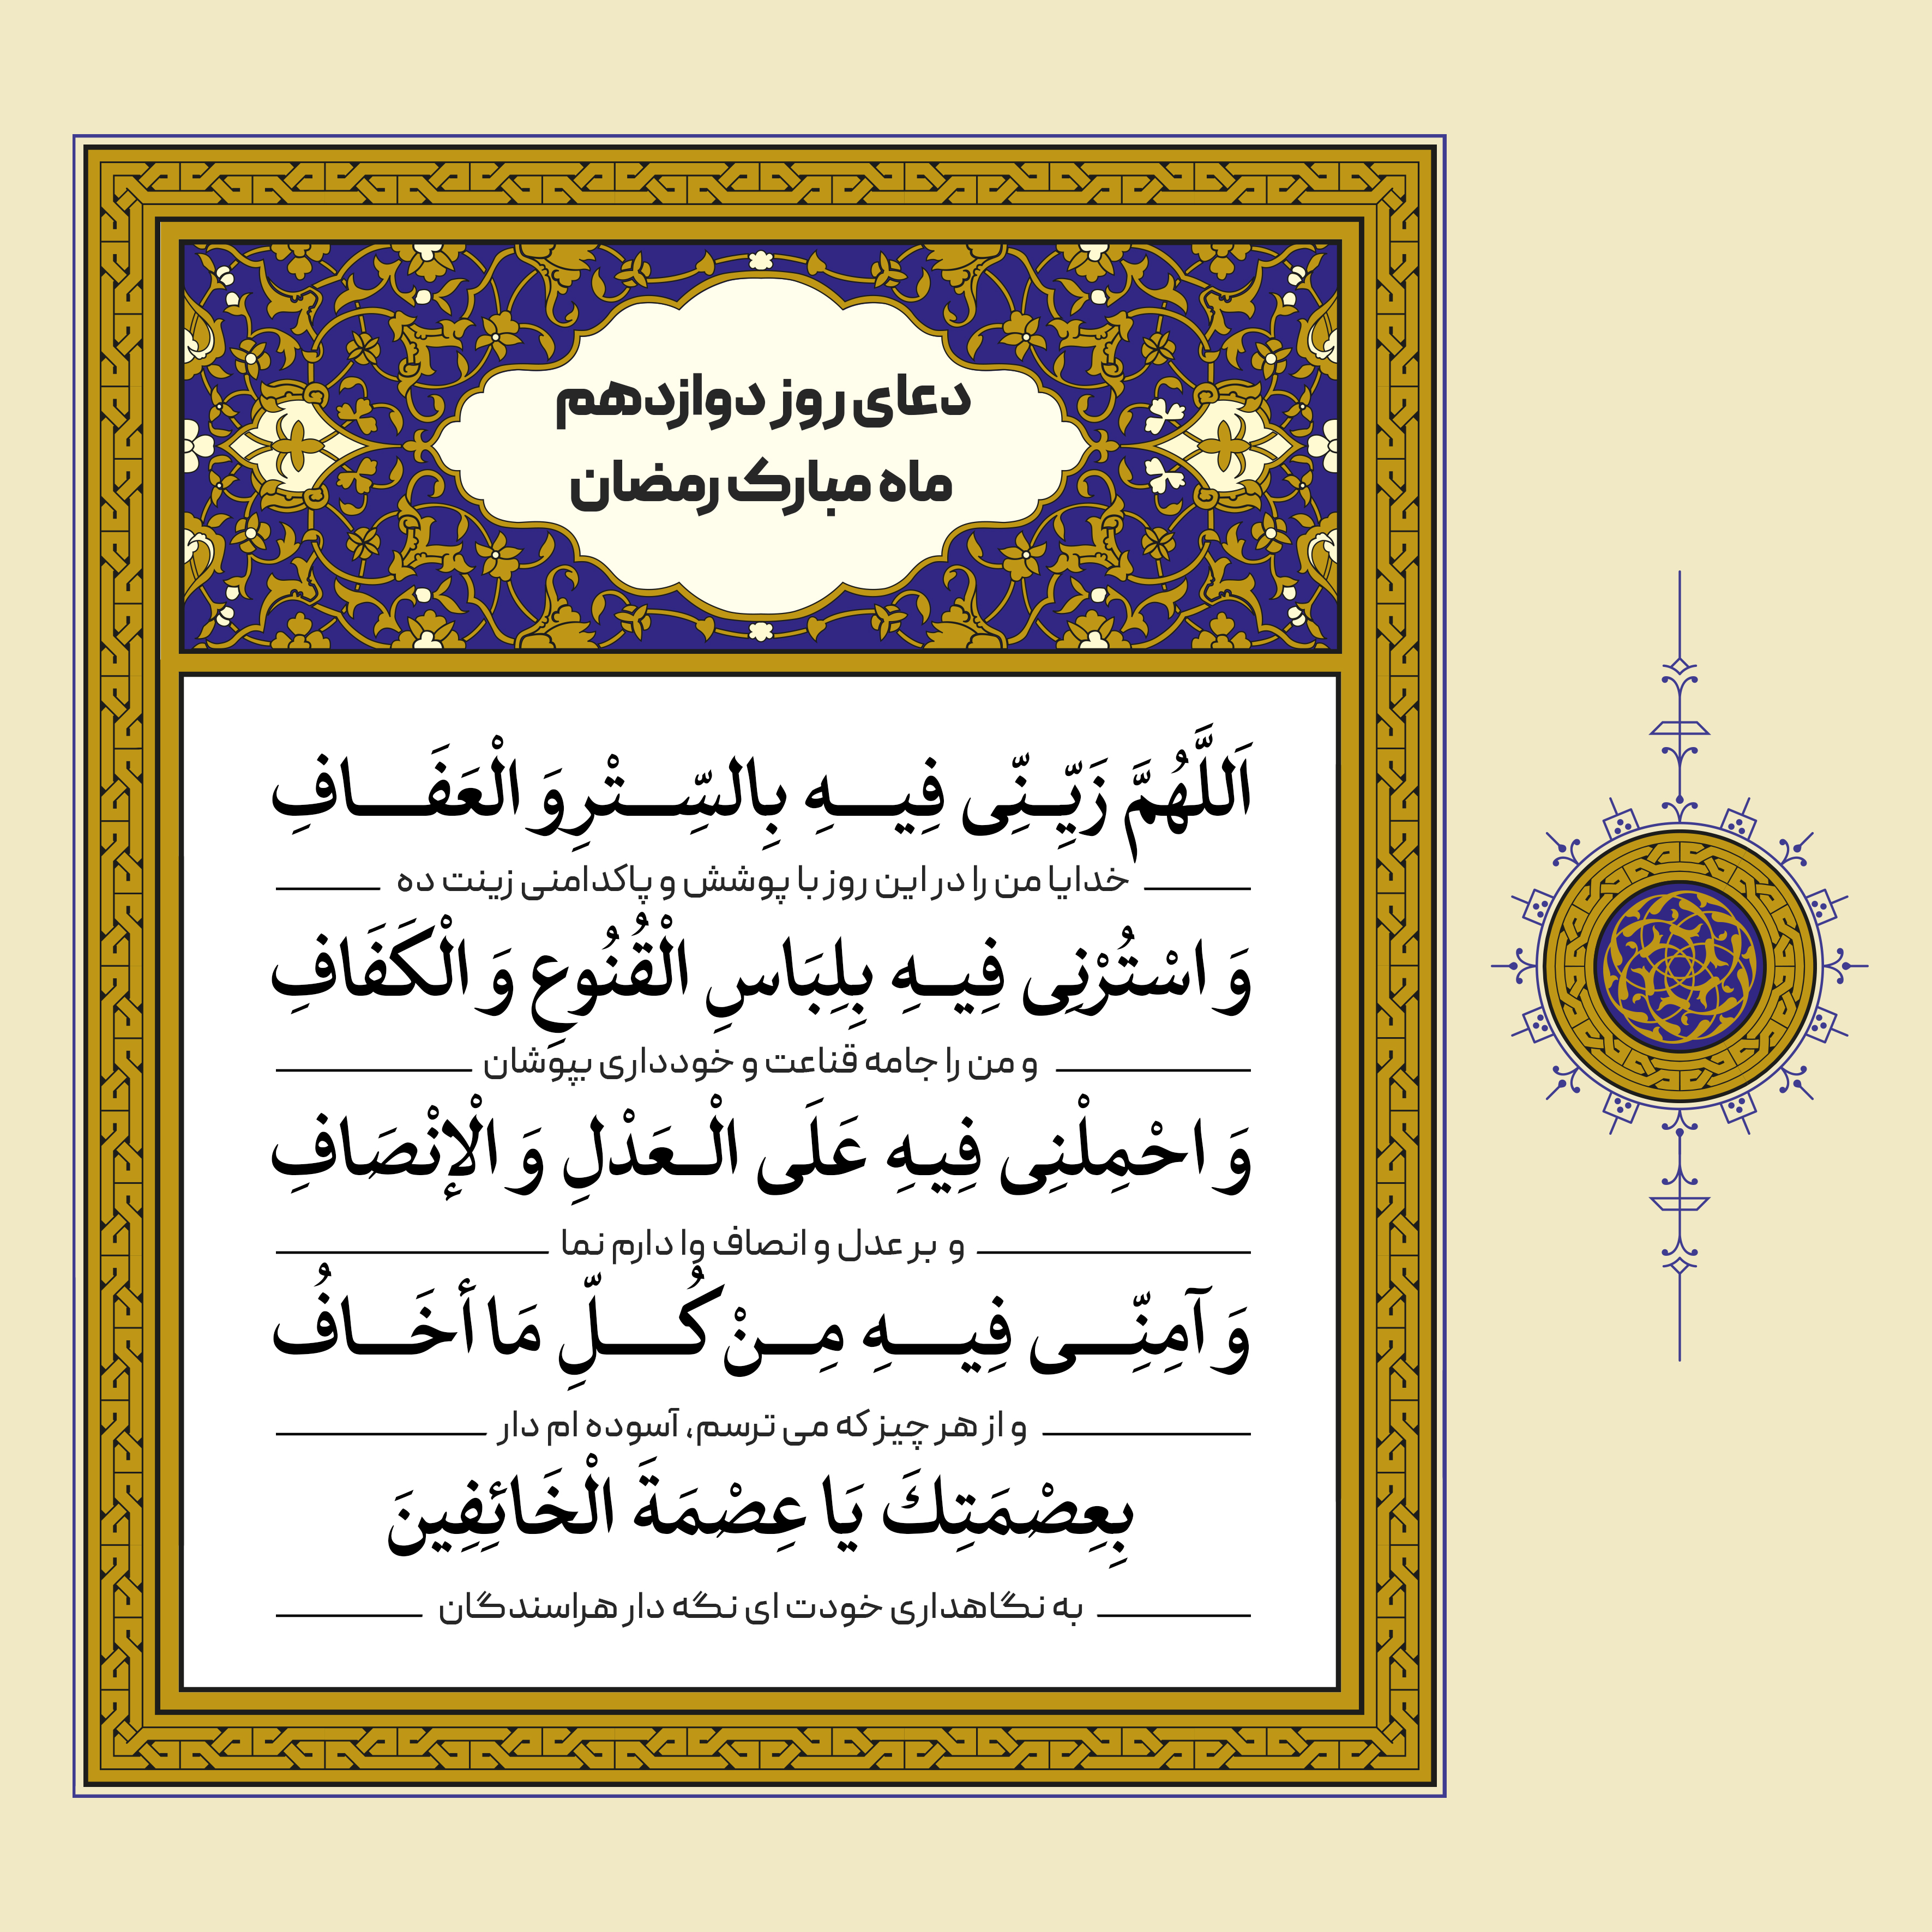 دعای روز دوازدهم
ماه مبارک رمضان
اَللَّهُمَّ زَیِّنِّی فِیهِ بِالسِّتْرِ وَ الْعَفَافِ
خدایا من را در این روز با پوشش و پاکدامنی زینت ده
وَ اسْتُرْنِی فِیهِ بِلِبَاسِ الْقُنُوعِ وَ الْکَفَافِ
و من را جامه قناعت و خودداری بپوشان
وَ احْمِلْنِی فِیهِ عَلَی الْعَدْلِ وَ الْإِنْصَافِ
و بر عدل و انصاف وا دارم نما
وَ آمِنِّی فِیهِ مِنْ کُلِّ مَا أَخَافُ
و از هر چیز که می ترسم، آسوده ام دار
بِعِصْمَتِكَ یَا عِصْمَةَ الْخَائِفِینَ
به نگاهداری خودت ای نگه دار هراسندگان